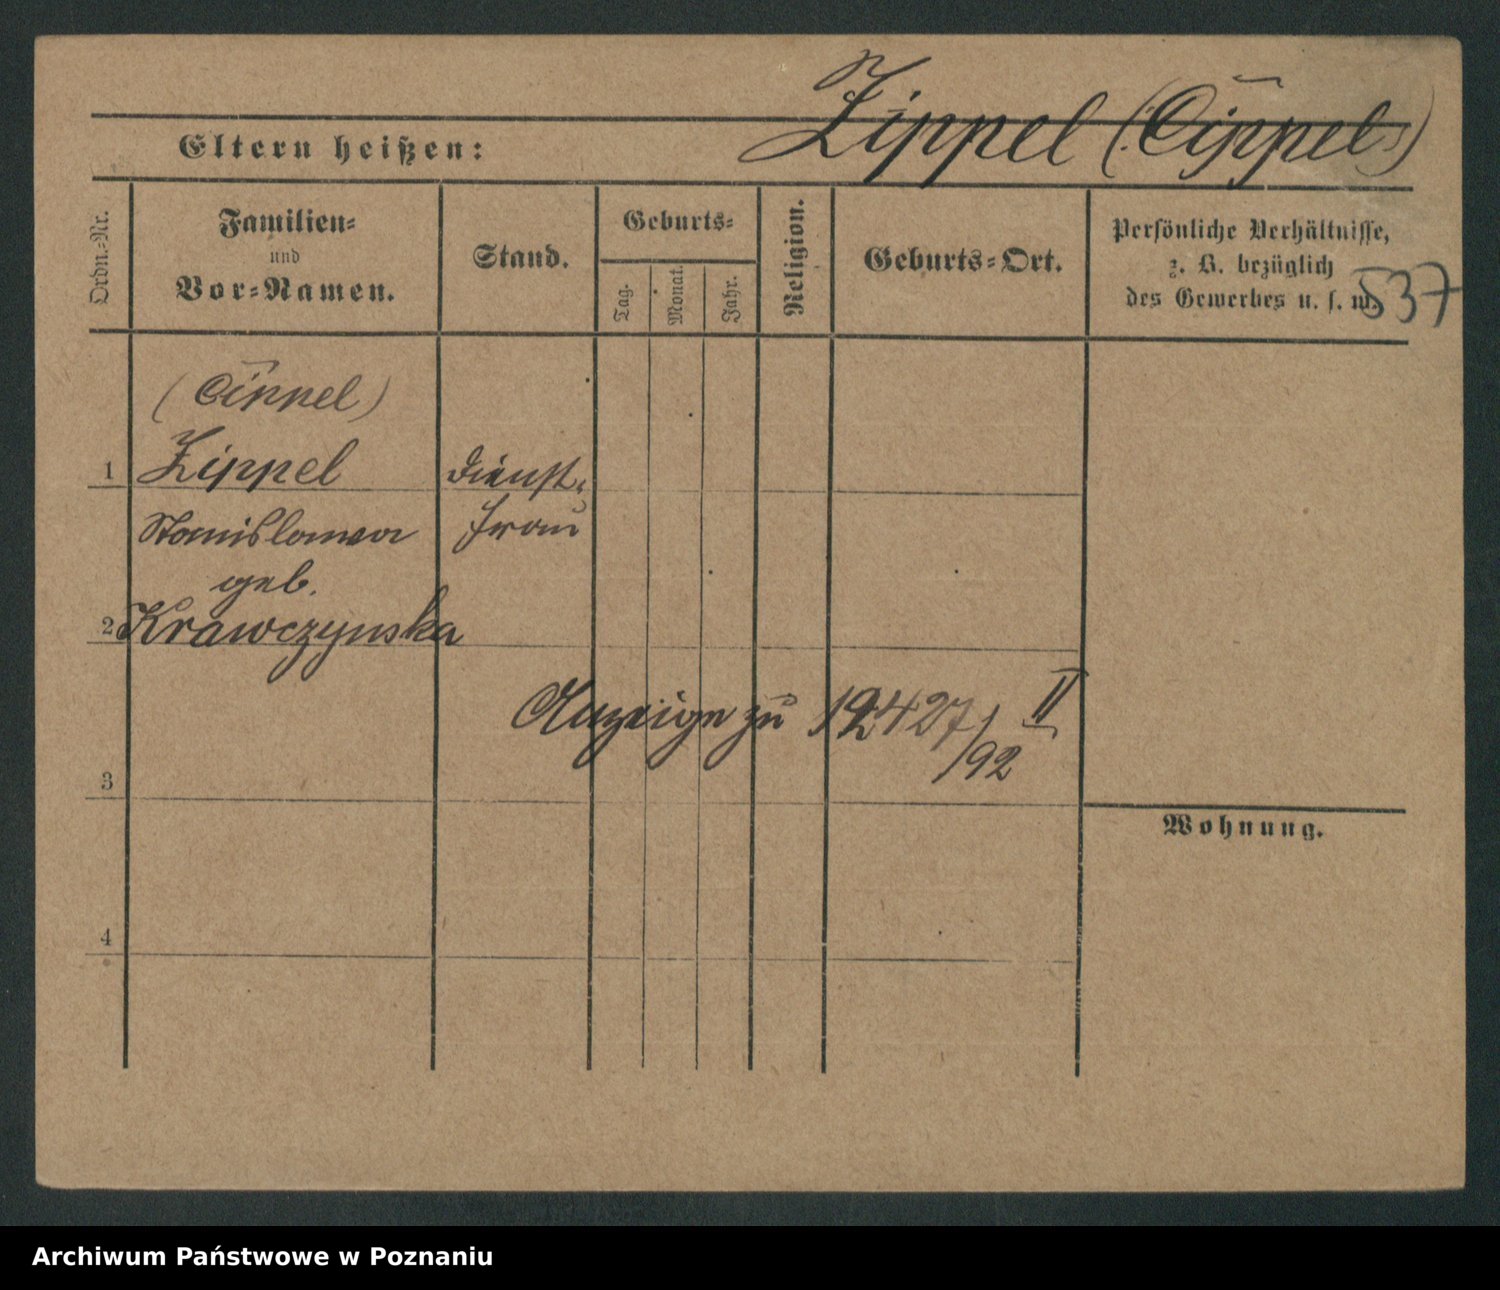 Zippel (Cippel)
Eltern heißen:
Ordn.=Nr.
Familien=
und
Vor=Namen.
Stand.
Geburts=
Tag.
Monat.
Jahr.
Religion.
Geburts=Ort.
Persönliche Verhältnisse,
z. B. bezüglich
des Gewerbes u. s. w.
537
(Cippel)
1 Zippel Dienst-
Stanislawa frau
geb.
2 Krawczynska
Anzeige zu 12427/92 II
3
Wohnung.
4
Archiwum Państwowe w Poznaniu